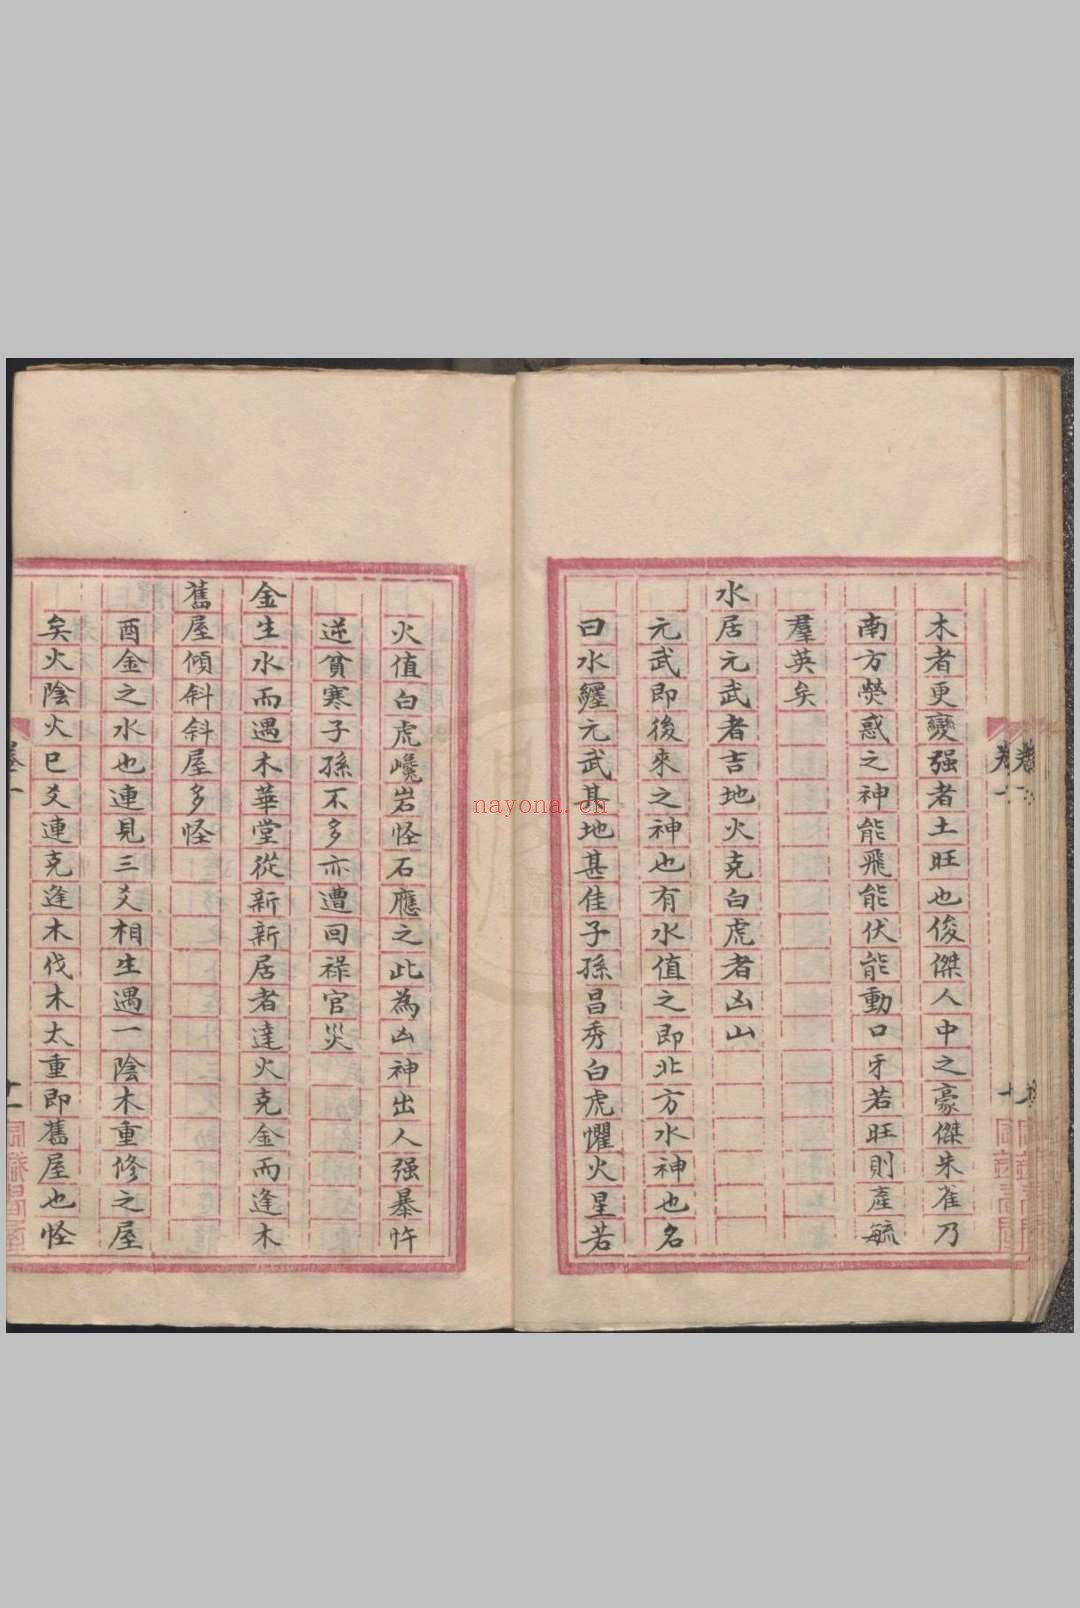 木者更變强者土旺也俊傑人中之豪傑朱雀乃
南方熒惑之神能飛能伏能動口牙若旺則產毓
羣英矣
水居元武者吉地火克白虎者凶山
元武即後來之神也有水值之即北方水神也名
曰水纏元武其地甚佳子孫昌秀白虎懼火星若
火值白虎巉岩怪石應之此為凶神出人强暴忤
逆貧寒子孫不多亦遭回祿官災
金生水而遇木華堂從新新居者達火克金而逢木
舊屋傾斜斜屋多怪
酉金之水也連見三爻相生遇一陰木重修之屋
矣火陰火巳爻連克逢木伐木太重即舊屋也怪
卷一
十
nayona.cn